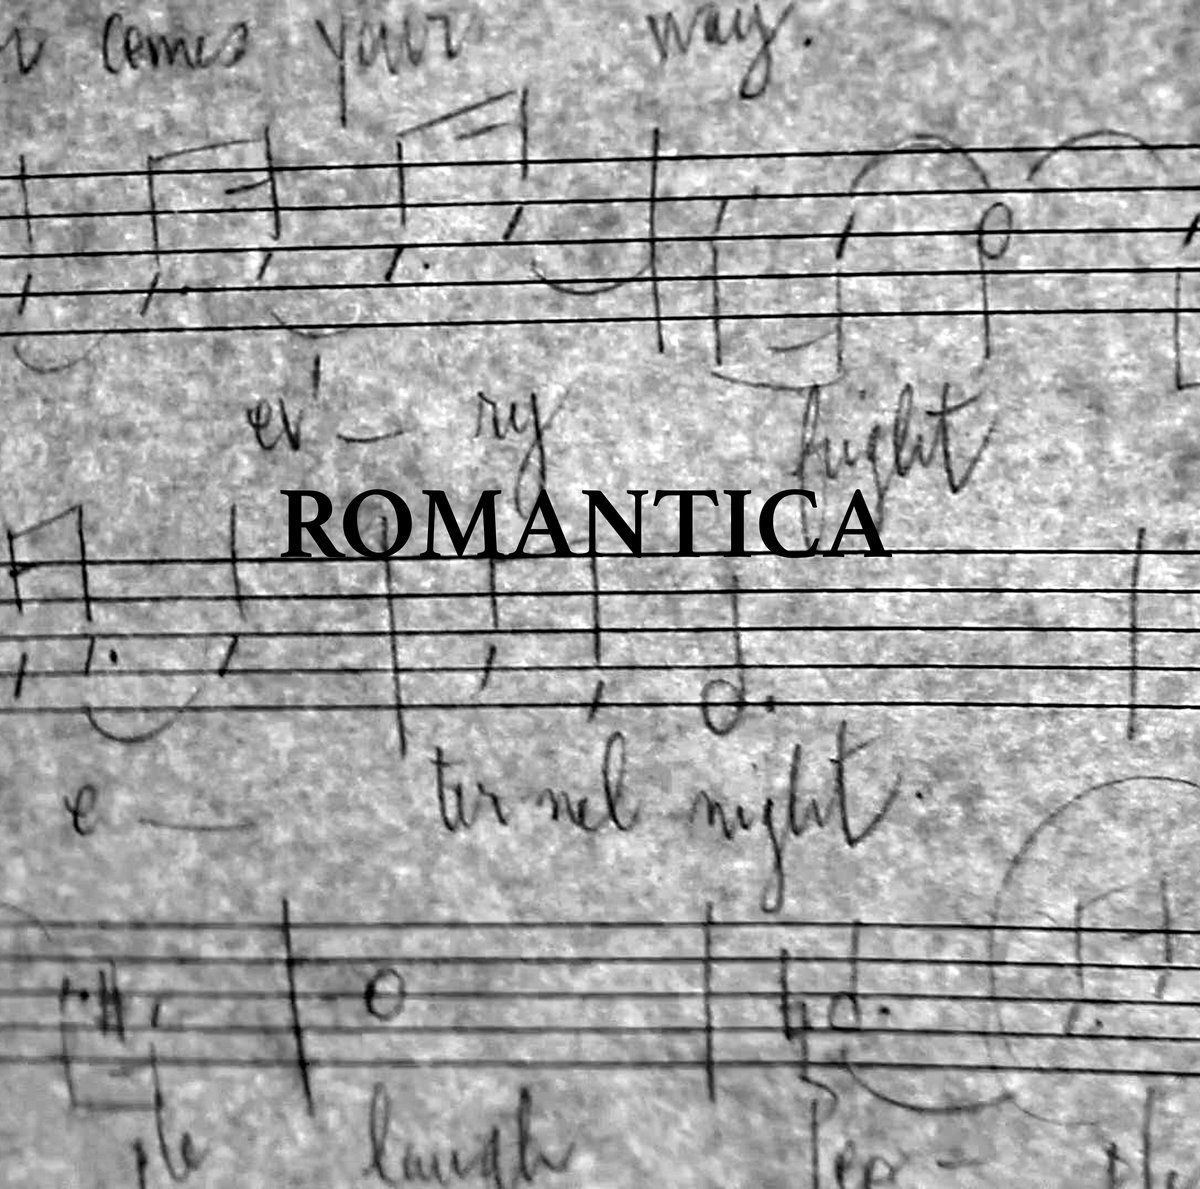 comes your way.
ev' — ry night
ROMANTICA
e — ternel night.
ple laugh